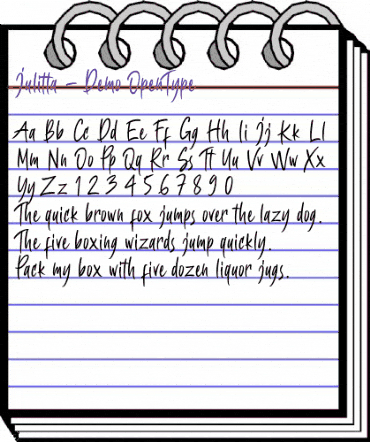 Julitta - Demo OpenType
Aa Bb Cc Dd Ee Ff Gg Hh Ii Jj Kk Ll
Mm Nn Oo Pp Qq Rr Ss Tt Uu Vv Ww Xx
Yy Zz 1 2 3 4 5 6 7 8 9 0
The quick brown fox jumps over the lazy dog.
The five boxing wizards jump quickly.
Pack my box with five dozen liquor jugs.